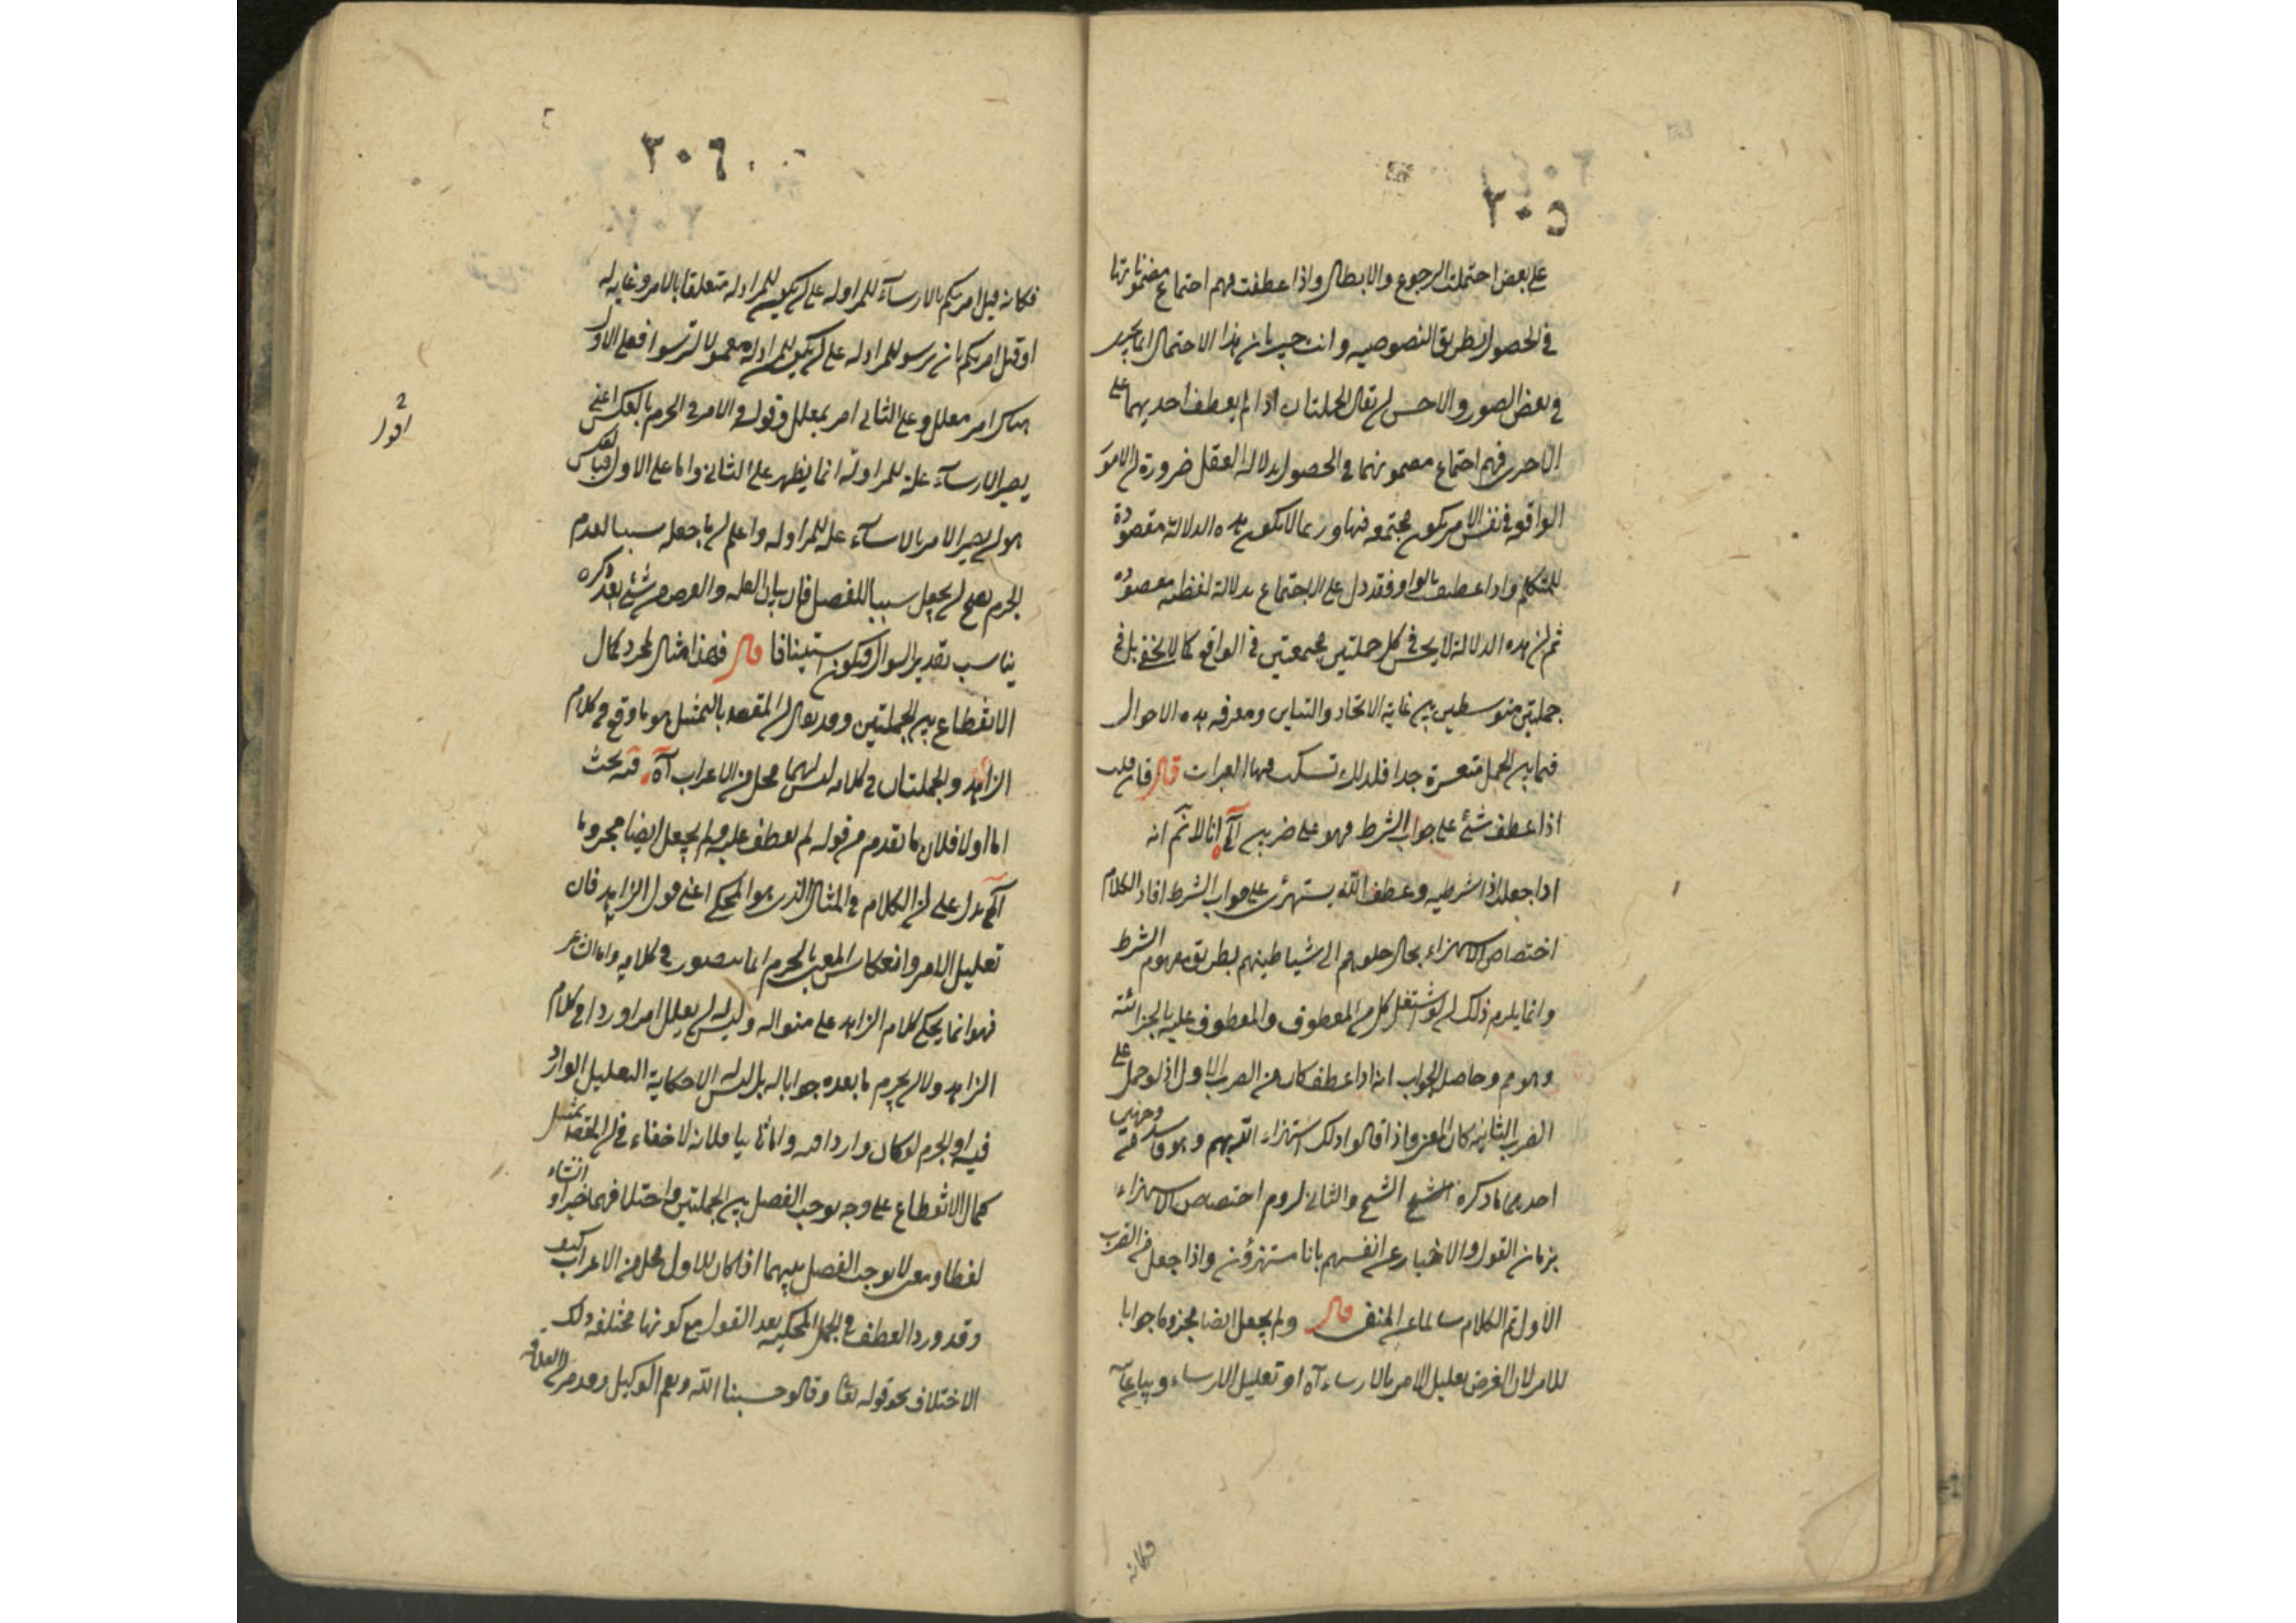 ٣٠٥
على بعض احتملت الرجوع والابطال واذا عطفت فهم اجتماع مضموناتها
في الحصول بطريق النصوصيه وانت خبير بان هذا الاحتمال انما يجرى
في بعض الصور والاحسن ان يقال الجملتان اذا لم يعطف احديهما على
الاخرى فهم اجتماع مضمونهما في الحصول بدلالة العقل ضرورة ان الامور
الواقعه في نفس الامر يكون مجتمعه فيها وربما لا يكون هذه الدلالة مقصودة
للمتكلم واذا عطف بالواو فقد دل على الاجتماع بدلالة لفظيه مقصوده
ثم ان هذه الدلالة لا يحسن في كل جملتين مجتمعتين في الواقع كما لا يخفى بل في
جملتين متوسطين بين غاية الاتحاد والتباين ومعرفه هذه الاحوال
فيما بين الجمل متعسرة جدا فلذلك تسكب فيها العبرات قال فان قلت
اذا عطف شئ على جواب الشرط فهو على ضربين آه انا لا نم انه
اذا جعل اذا شرطيه وعطف الله يستهزئ على جواب الشرط افاد الكلام
اختصاص الاستهزاء بحال خلوهم الى شياطينهم بطريق مفهوم الشرط
وانما يلزم ذلك لو استقل كل من المعطوف والمعطوف عليه بالجزائية
وهو مم وحاصل الجواب انه اذا عطف كان من الضرب الاول اذ لو حمل على
الضرب الثاني كان المعنى واذا قالوا ذلك استهزاء الله بهم وهو فاسد من وجهين
احدهما ما ذكره الشيخ الشيخ والثاني لزوم اختصاص الاستهزاء
بزمان القول والاخبار عن انفسهم بانا مستهزؤن واذا جعل من الضرب
الاول تم الكلام سالما عن المنع قال ولم يجعل ايضا مجزوما جوابا
للامر لان الغرض تعليل الامر بالارساء آه او تعليل الارساء وبيان
فكانه
٣٠٦
فكانه قيل امرتكم بالارساء للمزاوله على ان يكون للمزاوله متعلقا بالامر وغاية له
او قيل امرتكم بان ترسو للمزاوله على ان يكون للمزاوله معمولا لترسوا فعلى الاول
هناك امر معلل وعلى الثاني امر بمعلل وقوله والامر في الجزم بالعكس اعنى
يصير الارساء علة للمزاولة انما يظهر على الثاني واما على الاول فالعكس
هو ان يصير الامر بالارساء علة للمزاوله واعلم ان ما جعله سببا لعدم
الجزم يصح ان يجعل سببا للفصل فان بيان العله والغرض من شئ بعد ذكره
يناسب تقدير السوال فيكون استينافا قال فهذا مثال لمجرد كمال
الانقطاع بين الجملتين وقد يقال ان المقصود بالتمثيل هو ما وقع في كلام
الزايد والجملتان في كلامه ليس لهما محل من الاعراب آه فيه بحث
اما اولا فلان ما تقدم من قوله لم يعطف عليه ولم يجعل ايضا مجزوما
آه يدل على ان الكلام في المثال الذى هو المحكى اعنى قول الزايد فان
تعليل الامر وانعكاس المعنى بالجزم انما يتصور في كلامه واما الشاعر
فهو انما يحكى كلام الزايد على منواله وليس له ان يعلل امرا ورد في كلام
الزايد ولا ان يجزم ما بعده جوابا له بل ليس له الا حكاية التعليل الوارد
فيه او الجزم لو كان واردا فيه واما ثانيا فلانه لا خفاء في ان المقصود تمثيل
كمال الانقطاع على وجه يوجب الفصل بين الجملتين واختلافهما خبرا وانشاء
لفظا ومعنى لا يوجب الفصل بينهما اذا كان للاول محل من الاعراب كيف
وقد ورد العطف في الجمل المحكيه بعد القول مع كونها مختلفه ذلك
الاختلاف نحو قوله تعالى وقالوا حسبنا الله ونعم الوكيل وقد مر
اقول